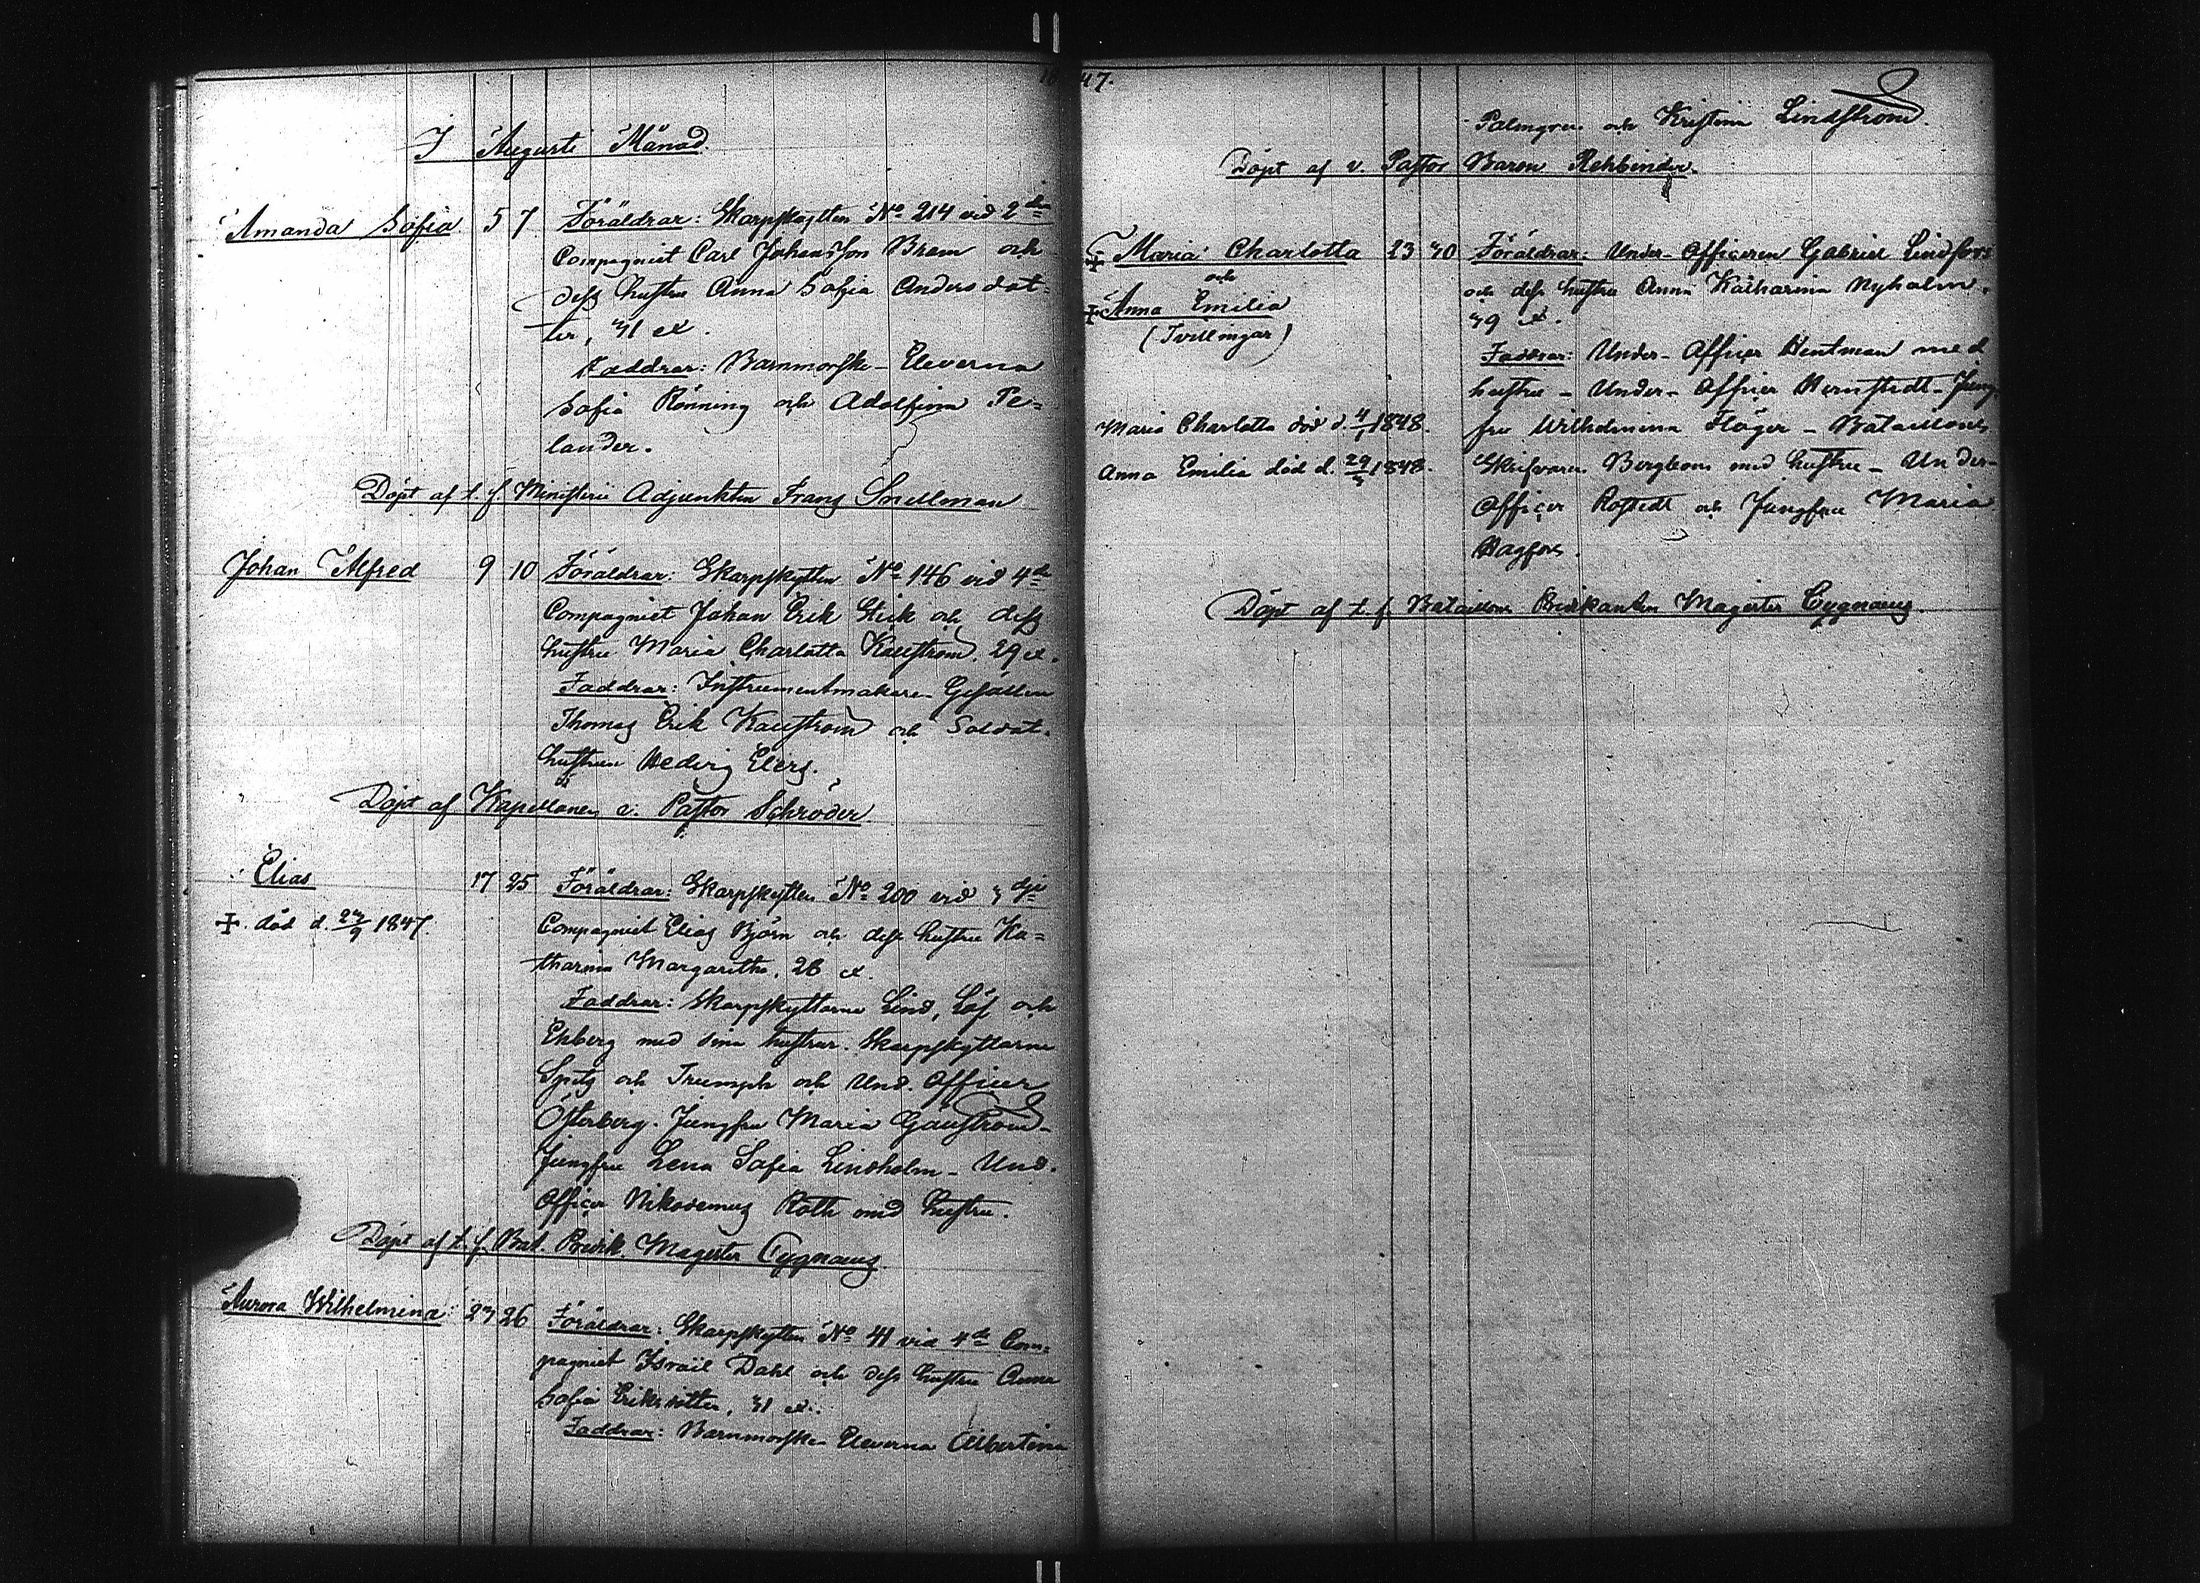 1847.
I Augusti Månad.
Amanda Sofia 5 7 Föräldrar: Skarpskytten No 214 vid 2dra
Compagniet Carl Johansson Bram och
dess hustru Anna Sofia Andersdot=
ter, 31 ex.
Faddrar: Barnmorske-Eleverna
Sofia Rönning och Adolfina Pe=
lander.
Döpt af t. f. Ministerii Adjunkten Frans Snellman
Johan Alfred 9 10 Föräldrar: Skarpskytten No 146 vid 4de
Compagniet Johan Erik Stick och dess
hustru Maria Charlotta Kallström, 29 ex.
Faddrar: Instrumentmakare Gesällen
Thomas Erik Kallström och Soldat-
hustrun Hedvig Elers.
Döpt af Kapellanen v. Pastor Schröder.
Elias 17 25 Föräldrar: Skarpskytten No 200 vid 3dje
död d. 23/9 1847. Compagniet Elias Björn och dess hustru Ka=
tharina Margaretha, 26 ex.
Faddrar: Skarpskyttarne Lind, Löf och
Ekberg med sina hustrur. Skarpskyttarne
Spitz och Triumph och Und. Officer
Österberg. Jungfru Maria Gäuström -
Jungfru Lena Sofia Lindholm - Und.
Officer Nikodemus Roth med hustru.
Döpt af t. f. Bat. Predik. Magister Cygnæus.
Aurora Wilhelmina 23 26 Föräldrar: Skarpskytten No 41 vid 4de Com=
pagniet Israil Dahl och dess hustru Anna
Sofia Eriksdotter, 31 ex.
Faddrar: Barnmorske Eleverna Albertina
Palmgren och Kristina Lindström.
Döpt af v. Pastor Baron Rehbinder.
Maria Charlotta 23 30 Föräldrar: Under-Officeren Gabriel Lindfors
och
och dess hustru Anna Katharina Nyholm,
Anna Emilia
39 ex.
(Tvillingar)
Faddrar: Under-Officer Hentman med
hustru - Under-Officer Hernstedt - Jung-
Maria Charlotta död d. 4/1 1848.
fru Wilhelmina Höger - Bataillons
Anna Emilia död d. 29/3 1848.
Skrifvaren Bergbom med hustru - Under-
Officer Rostedt och Jungfru Maria
Hagfors.
Döpt af t. f. Bataillons Predikanten Magister Cygnæus.